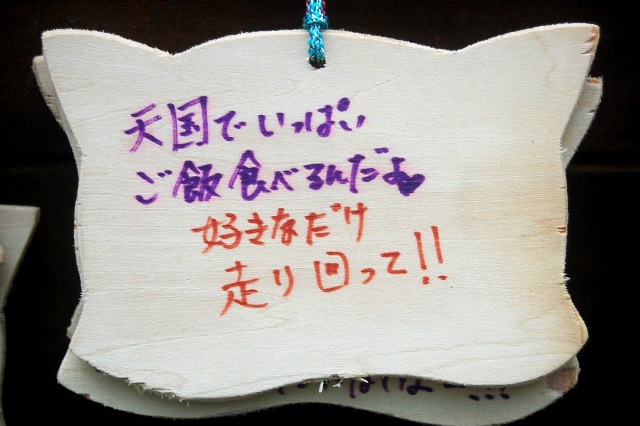 天国でいっぱい
ご飯食べるんだよ♥
好きなだけ
走り回って!!